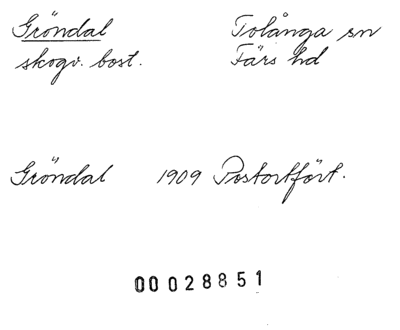 Gröndal Tolånga sn
skogv. bost. Färs hd
Gröndal 1909 Postortfört.
00028851